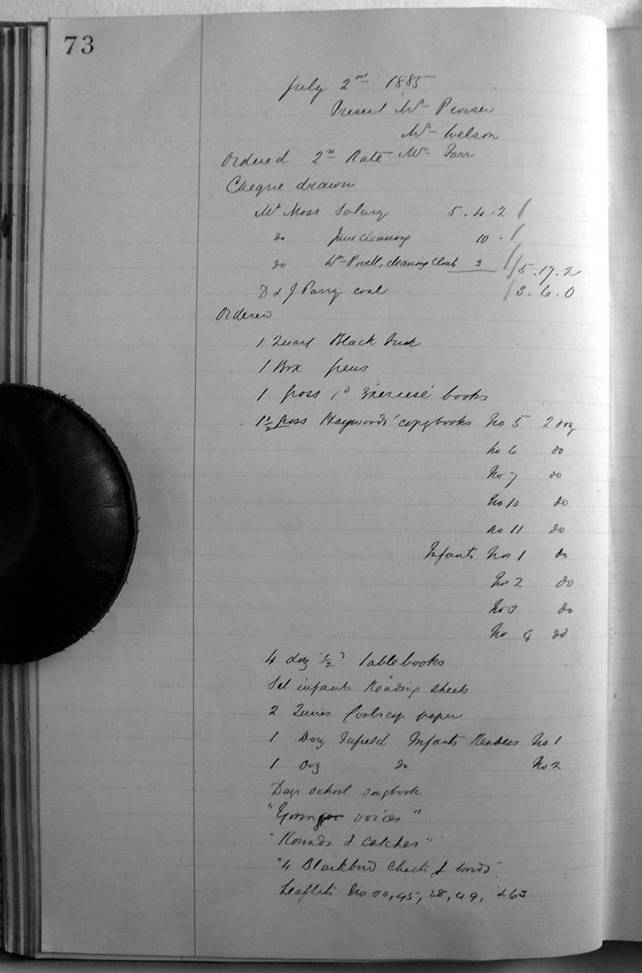 73
July 2nd 1885
Present Mr Pearser
Mr Welson
Ordered 2nd Rate Mr Farr
Cheque drawn
Mr Moss Salary 5.4.2 /
do June cleaning 10. - /
do Wm Powell, cleaning Clock 3 / / 5.17.2
D & J Parry coal / 3.6.0
Ordered
1 Quart Black Ink
1 Box pens
1 gross 1d Exercise books
1½ Gross Heywoods' copybooks No 5 2 doz
No 6 do
No 7 do
No 10 do
No 11 do
Infants No 1 do
No 2 do
No 3 do
No 4 do
4 doz ½d Tablebooks
Set infants Reading Sheets
2 Quires foolscap paper
1 Doz Infield Infants Readers No 1
1 Doz do No 2
Days school songbook
"Young voices"
"Rounds & catches"
"4 Blackbird Charts &
Leaflets No 45, 28, 49, & 63